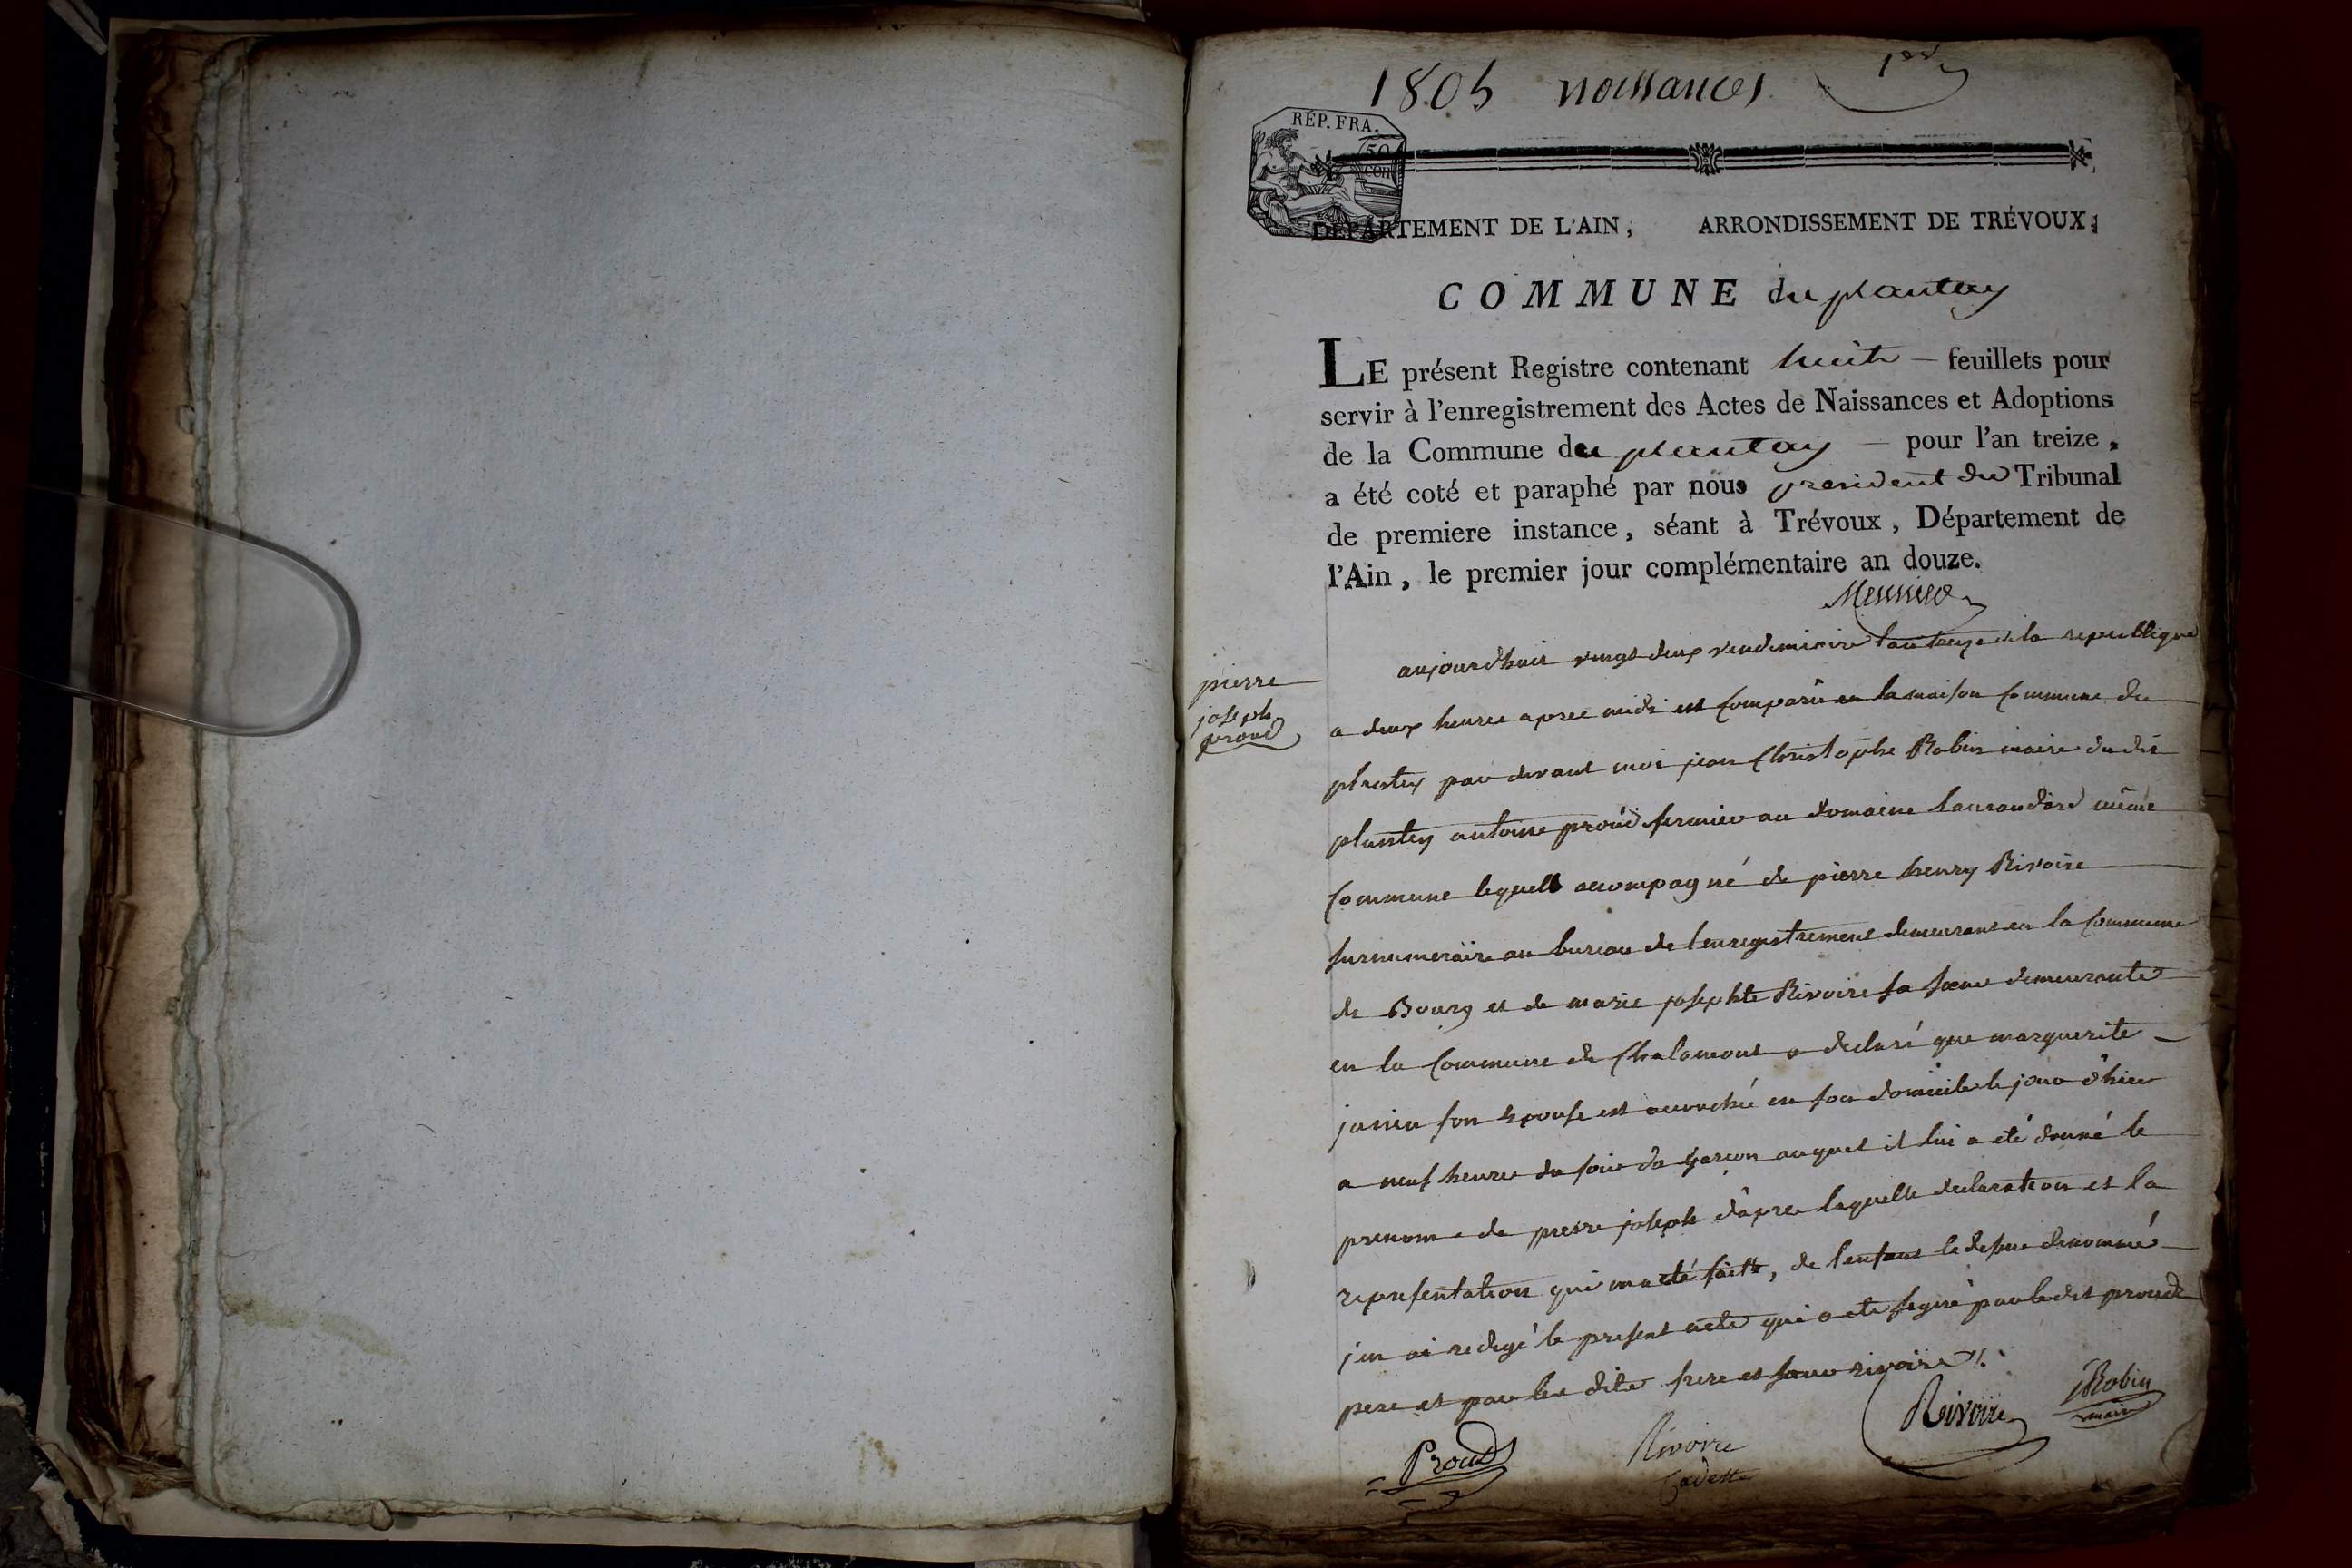 1805 naissances 1er
RÉP. FRA.
50
DÉPARTEMENT DE L'AIN, ARRONDISSEMENT DE TRÉVOUX,
COMMUNE du plantay
LE présent Registre contenant huit — feuillets pour
servir à l'enregistrement des Actes de Naissances et Adoptions
de la Commune du plantay — pour l'an treize,
a été coté et paraphé par nous president du Tribunal
de premiere instance, séant à Trévoux, Département de
l'Ain, le premier jour complémentaire an douze.
aujourdhui vingt deux vendemiaire lan treize de la republique
pierre
joseph
proud
a deux heures apres midi est comparu en la maison commune du
plantey par devant moi jean Christophe Robin maire du dit
plantey antoine proud fermier au domaine même
commune lequell accompagné de pierre henry Rivoire
surnumeraire au bureau de lenregistrement demeurant en la commune
de Bourg et de marie josephte Rivoire sa sœur demeurante
en la commune de Chalamont a declaré que marguerite
son epouse est accouchée en son domicile le jour d'hier
a neuf heures du soir du garçon auquel il lui a été donné le
prenom de pierre joseph d'apres laquelle declaration et la
representation qui ma été faitte, de lenfant le dessus denommé
j'en ai redigé le present acte qui a été signé par ledit proud
pere et par les dits frere et sœur rivoire
Proud
Rivoire
Cadette
Rivoire
Robin
maire